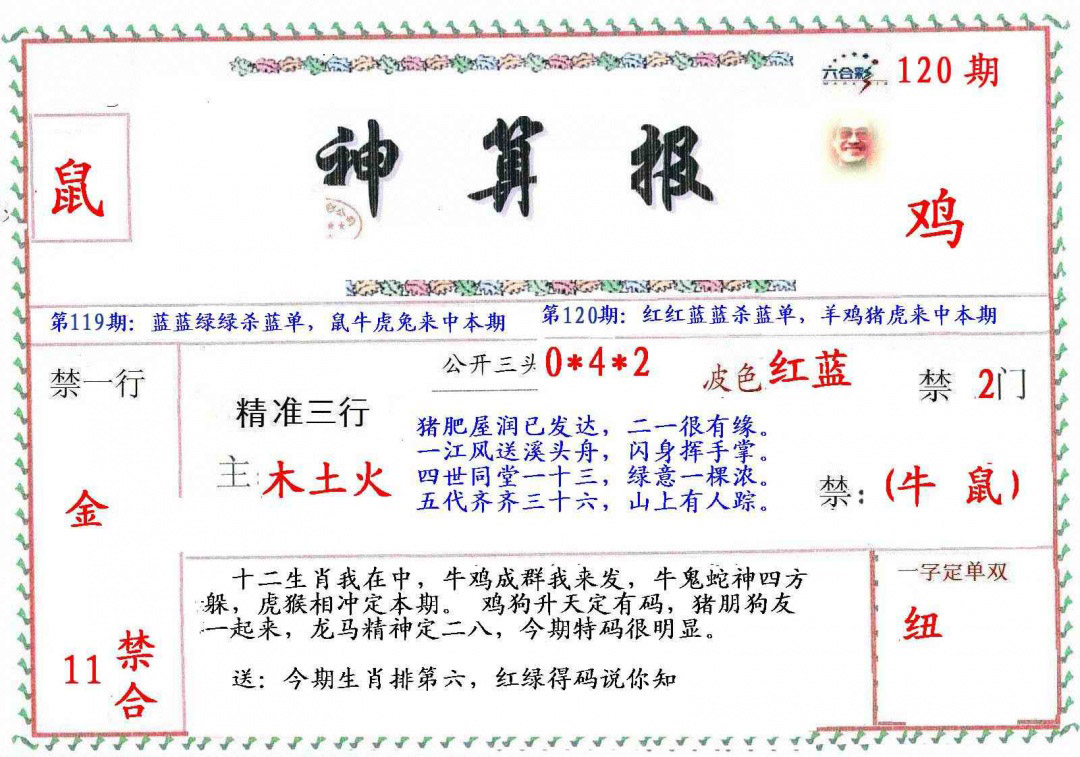 六合彩
120 期
鼠
神算报
鸡
第119期：蓝蓝绿绿杀蓝单，鼠牛虎兔来中本期
第120期：红红蓝蓝杀蓝单，羊鸡猪虎来中本期
禁一行
金
11 禁合
精准三行
主：木土火
公开三头 0*4*2
波色 红蓝
猪肥屋润已发达，二一很有缘。
一江风送溪头舟，闪身挥手掌。
四世同堂一十三，绿意一棵浓。
五代齐齐三十六，山上有人踪。
禁 2门
禁：(牛 鼠)
十二生肖我在中，牛鸡成群我来发，牛鬼蛇神四方
躲，虎猴相冲定本期。 鸡狗升天定有码，猪朋狗友
一起来，龙马精神定二八，今期特码很明显。
送：今期生肖排第六，红绿得码说你知
一字定单双
纽